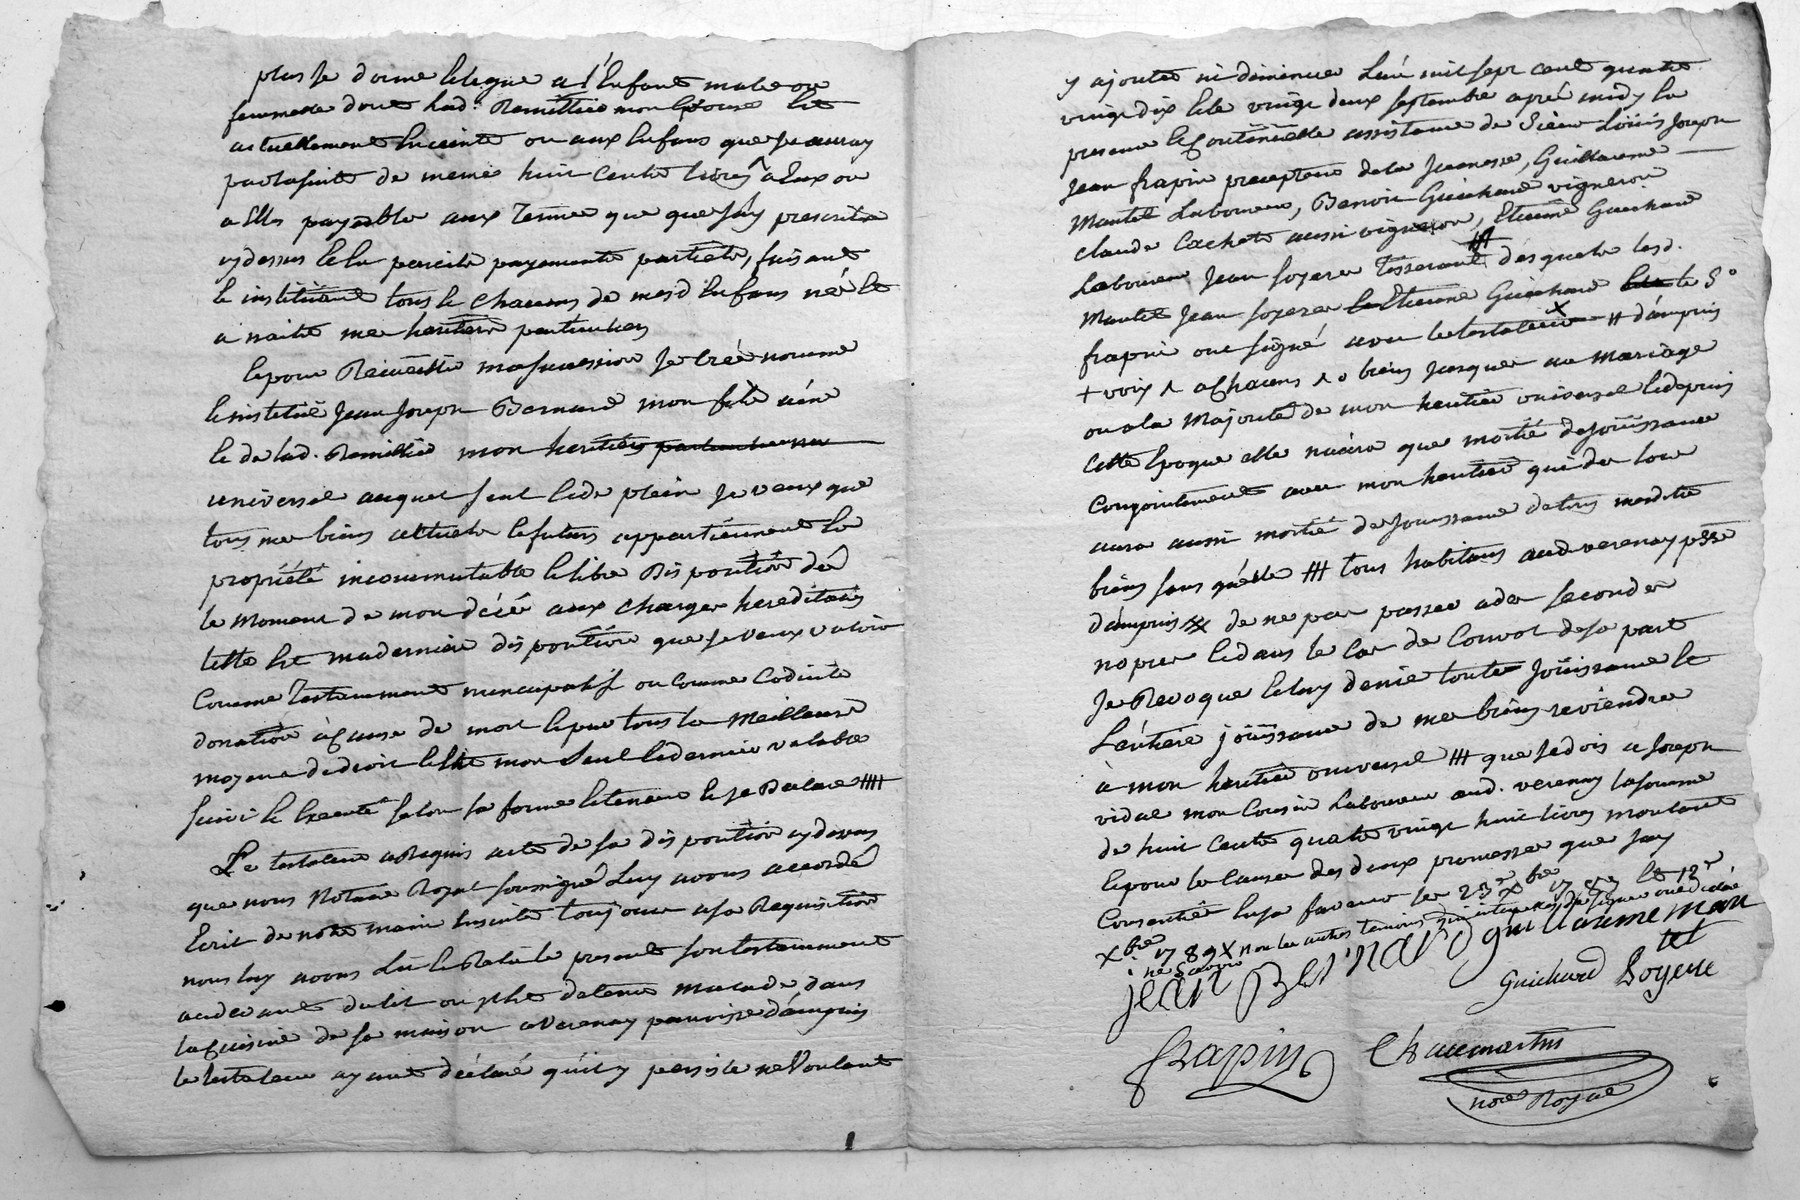 plus je donne et legue a l'enfant male ou
femmelle dont lad. Remillieé mon Epouse Est
actuellement Enceinte ou aux Enfans que je auray
parlasuite de meme huit cents livres a Eux ou
a Elles payable aux Terme que que j'ay prescrits
cydessus Et la pareils payements partiels, faisant
Et instituant tous Et chacuns de mesd Enfans néé Et
a naitre me heritiers particuliers
Epour Recueillir masuccession Je Créé nomme
Et institue Jean Joseph Bernard mon fils ainé
Et de lad. Remilliée mon heritiers particulier mon
universel auquel seul Ede plein Je veux que
tous me biens actuels Et futurs appartiennent En
propriété incommutable Et libre Disposition dés
le moment de mon décés aux charges hereditaires
telle Est maderniere disposition que Je veux valoir
Comme Testamment nuncupatif ou Comme Codicile
donation àcause de mort Epar tous les meilleurs
moyens dedroit C'est mon seul Edernier valable
suivi Et Executé selon sa forme Eteneur Et Je Declare ####
Le testateur aRequis acte de sa disposition cydessus
que nous Notaire Royal soussigné Luy avons accordéé
Ecrit de notre main Ensuite toujours asa Requisition
nous luy avons Lu Et Relu le present son testamment
audevant dulit ou il Est detenu malade, dans
la cuisine de sa maison a Verenay parroisse d'ampuis
le testateur ayant déclaré qu'il y persiste ne Voulant
y ajouter ni diminuer L'an mil sept cent quatre
vingt dix Et le vingt deux septembre aprés midy En
presence Et continuelle assistance de Sieur Loüis Joseph
Jean frapin precepteur dela Jeunesse, Guillaume
Mantel Laboureur, Benoit Guichard vigneron
Claude Cachet aussi vigneron, Etienne Guichard
Laboureur Jean soyere Tisserand ### desquels lesd.
Mantel Jean soyere Et Etienne Guichard Et le S.
frapin ont signé avec le testateur X # d'ampuis
+ voix ^ achacuns ^ o biens jusques au mariage
ou a la majorité de mon heritier universel Edepuis
Cette Epoque elle n'aura que moitié dejoüissance
Conjointement avec mon heritier qui des lors
aura aussi moitié dejouissance de tous mesdits
biens sans qu'elle ### tous habitans aud verenay psse
d'ampuis XX de ne pas passer ades secondes
nopces Edans le Cas de Convol desa part
Je Revoque Et luy denie toute Joüissance Et
L'entiere joüissance de me biens reviendra
à mon heritier universel ### que Je dois a Joseph
vidal mon Cousin Laboureur aud. verenay lasomme
de huit cents quatre vingt huit livres montant
Epour le cause des deux promesses que j'ay
Consentiés En sa faveur les 23e Xbre 1787 Et 12e
Xbre 1789 X non les autres temoins pour ne savoir
Jean Bernard guillaume mantel
Guichard Soyere
frapin Chaumartin
nore Royal